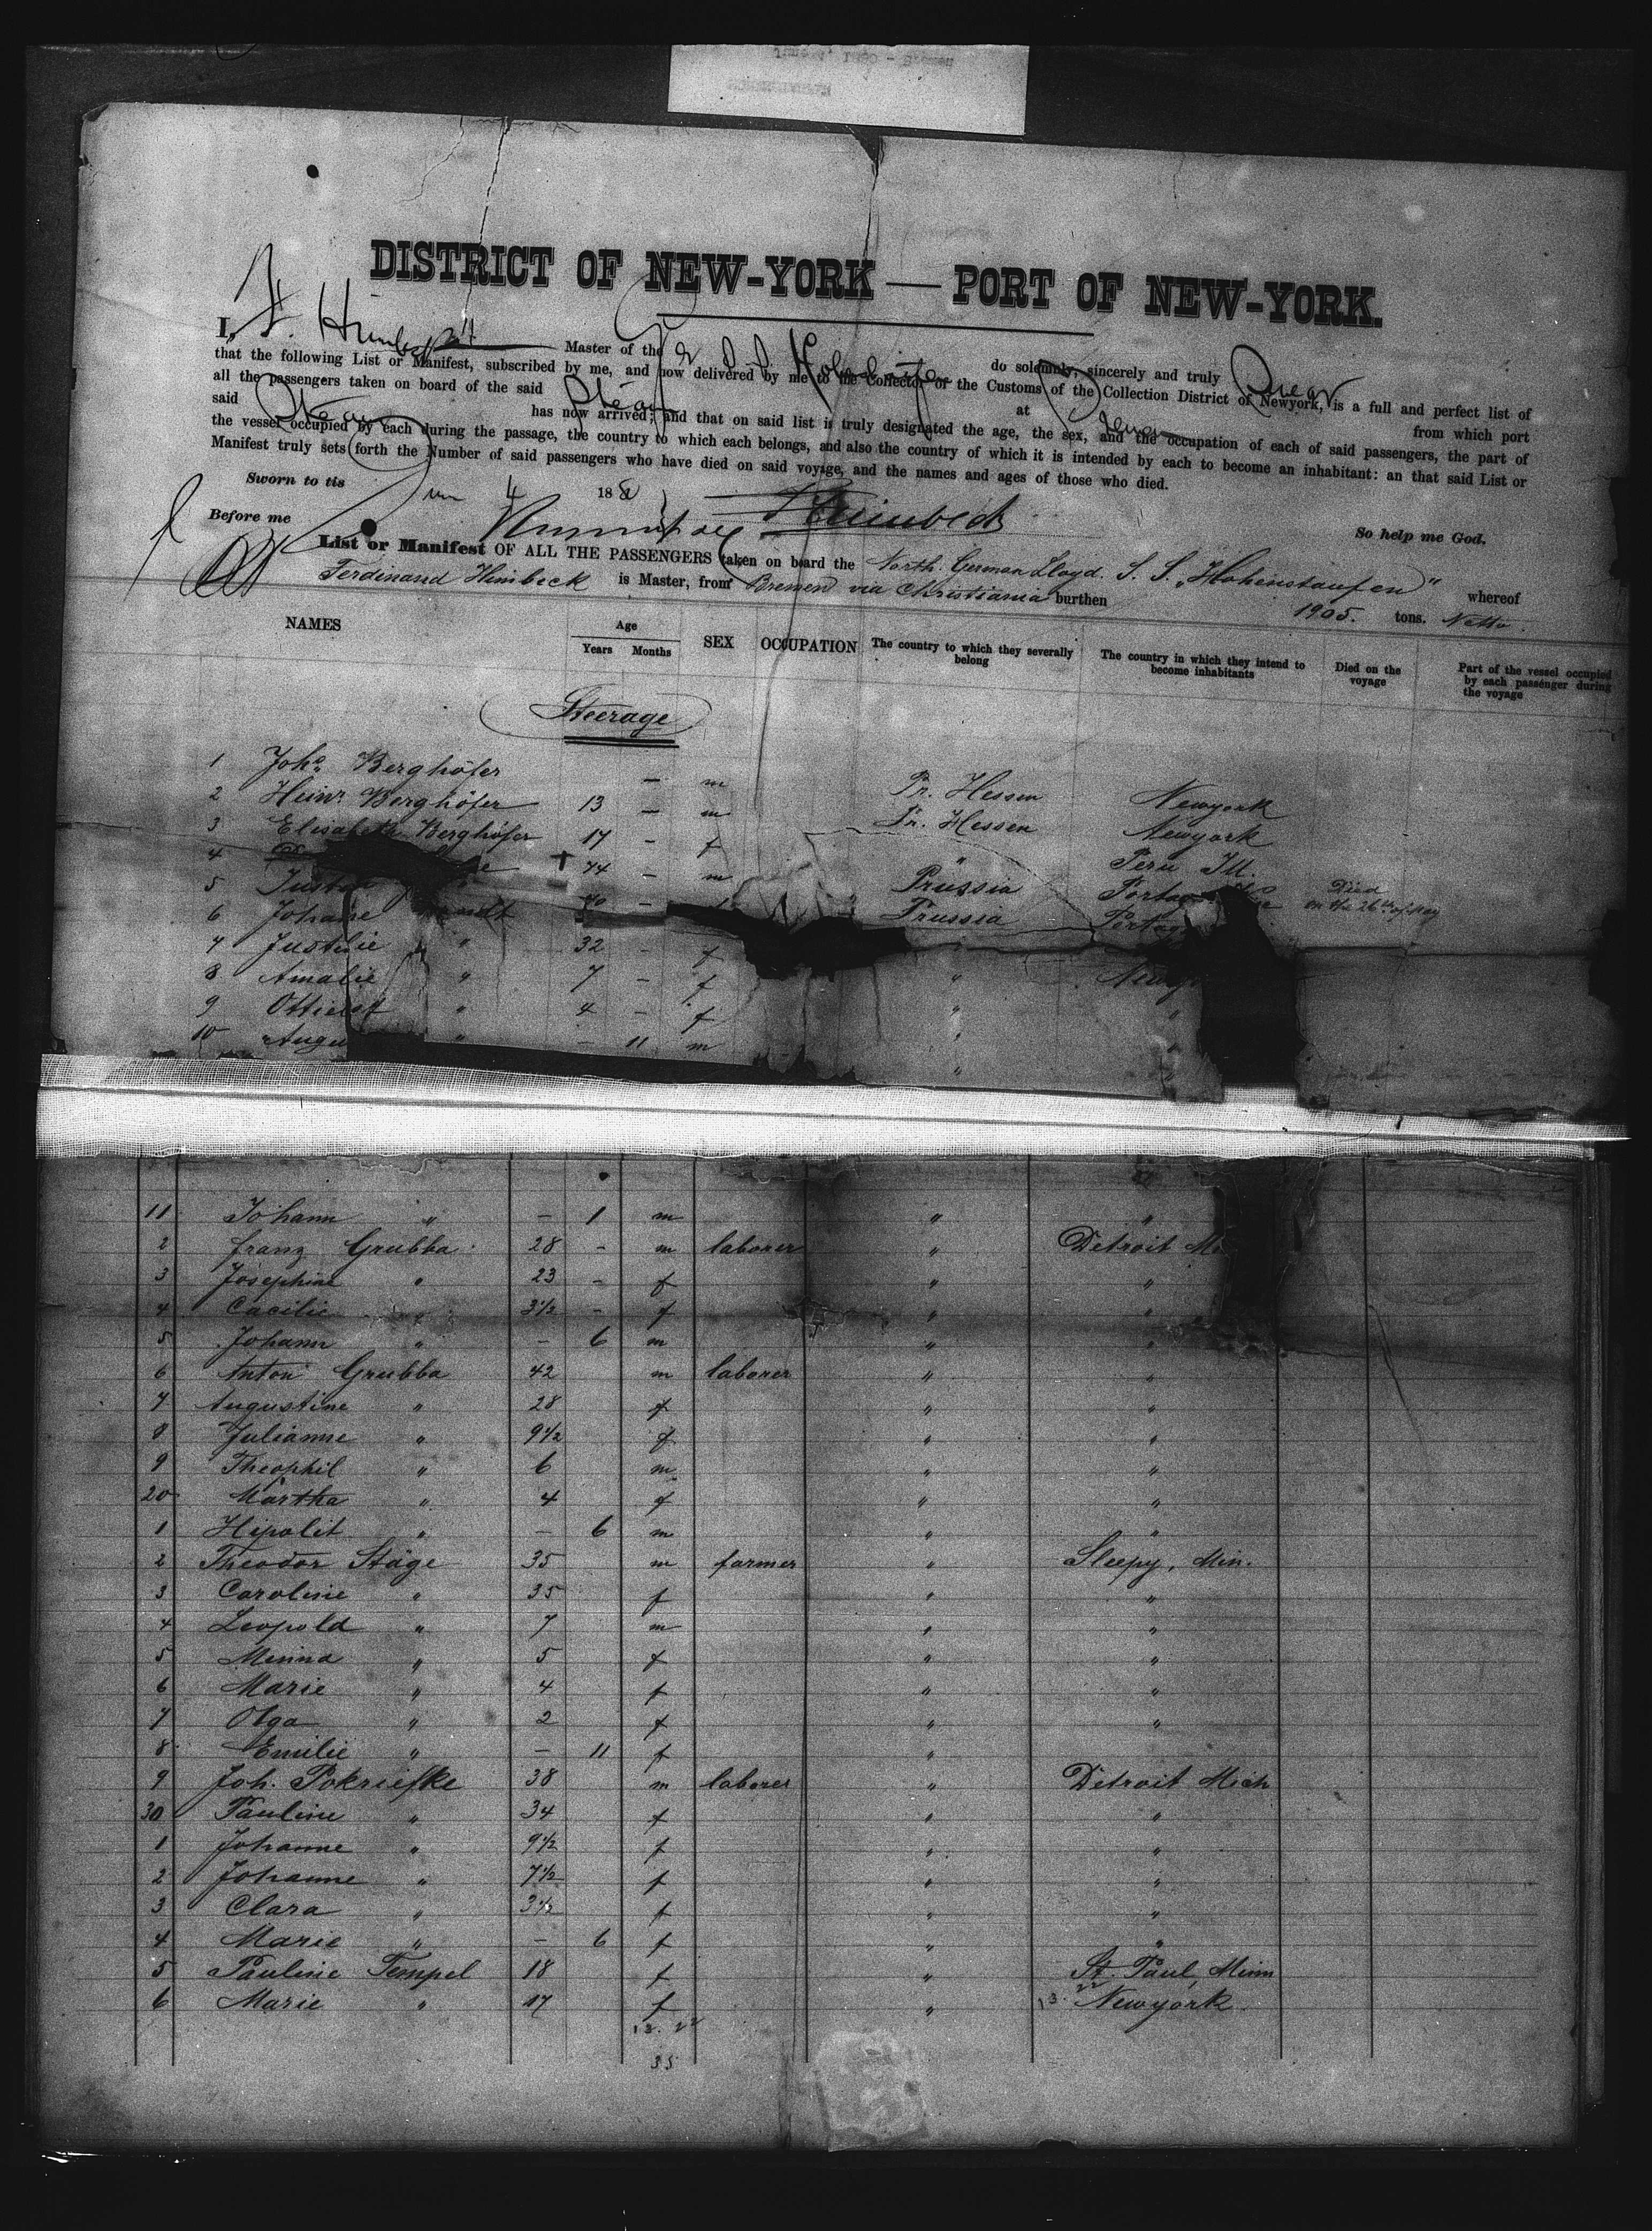 DISTRICT OF NEW-YORK — PORT OF NEW-YORK.
I, F. Himbeck Master of the S. S. Hohenstaufen do solemnly, sincerely and truly swear
that the following List or Manifest, subscribed by me, and now delivered by me to the Collector of the Customs of the Collection District of Newyork, is a full and perfect list of
all the passengers taken on board of the said Steam at from which port
said Steam has now arrived; and that on said list is truly designated the age, the sex, and the occupation of each of said passengers, the part of
the vessel occupied by each during the passage, the country to which each belongs, and also the country of which it is intended by each to become an inhabitant: an that said List or
Manifest truly sets forth the Number of said passengers who have died on said voyage, and the names and ages of those who died.
Sworn to tis June 4 188
So help me God.
Before me Himbeck
List or Manifest OF ALL THE PASSENGERS taken on board the North. German Lloyd. S. S. „Hohenstaufen" whereof
Ferdinand Himbeck is Master, from Bremen via Christiania burthen 1905. tons. Netto.
NAMES Age Years Months SEX OCCUPATION The country to which they severally belong The country in which they intend to become inhabitants Died on the voyage Part of the vessel occupied by each passenger during the voyage
Steerage
1 Joh. Berghöfer — m Pr. Hessen Newyork
2 Heinr. Berghöfer 13 — m Pr. Hessen Newyork
3 Elisabeth Berghöfer 17 — f " Peru Ill.
4 74 — m Prussia Portage Died on the 26th of May
5 70 — Prussia Portage
6 Johane 32 — f "
7 Justine " 7 — f " Newyork
8 Amalie " 4 — f " "
9 Ottielie " — 11 m "
10 Augu " "
11 Johann " — 1 m " "
2 Franz Grubba 28 — m laborer " Detroit Mi
3 Josephine " 23 — f " "
4 Cäcilie " 3½ — f " "
5 Johann " — 6 m " "
6 Anton Grubba 42 m laborer " "
7 Augustine " 28 f " "
8 Julianne " 9½ f " "
9 Theophil " 6 m " "
20 Martha " 4 f " "
1 Hipolit " — 6 m " "
2 Theodor Stäge 35 m farmer " Sleepy, Min.
3 Caroline " 35 f " "
4 Leopold " 7 m " "
5 Minna " 5 f " "
6 Marie " 4 f " "
7 Olga " 2 f " "
8 Emilie " — 11 f "
9 Joh. Pokriefke 38 m laborer " Detroit Mich
30 Pauline " 34 f " "
1 Johanne " 9½ f " "
2 Johanne " 7½ f " "
3 Clara " 3½ f " "
4 Marie " — 6 f " "
5 Pauline Tempel 18 f " St. Paul, Minn
6 Marie " 17 f " 13. 22 Newyork.
13. 22
35